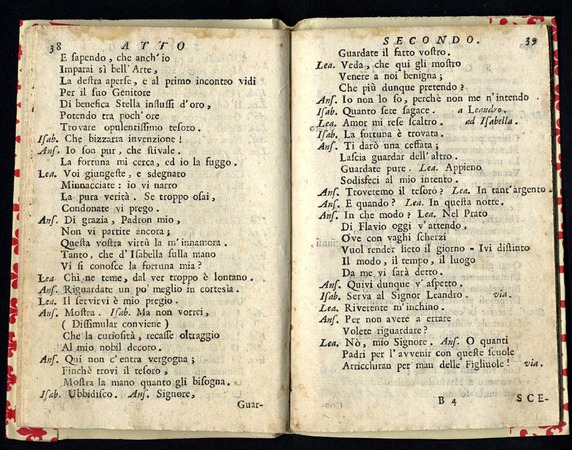 38 ATTO
E sapendo, che anch'io
Imparai sì bell'Arte,
La destra aperse, e al primo incontro vidi
Per il suo Genitore
Di benefica Stella influssi d'oro,
Potendo tra poch'ore
Trovare opulentissimo tesoro.
Isab. Che bizzarra invenzione!
Ans. Io son pur, che stivale.
La fortuna mi cerca, ed io la fuggo.
Lea. Voi giungeste, e sdegnato
Minnacciate: io vi narro
La pura verità. Se troppo osai,
Condonate vi prego.
Ans. Di grazia, Padron mio,
Non vi partite ancora;
Questa vostra virtù la m'innamora.
Tanto, che d'Isabella sulla mano
Vi si conosce la fortuna mia?
Lea Chi ne teme, dal ver troppo è lontano.
Ans. Riguardate un po' meglio in cortesia.
Lea. Il servirvi è mio pregio.
Ans. Mostra. Isab. Ma non vorrei,
( Dissimular conviene )
Che la curiosità, recasse oltraggio
Al mio nobil decoro.
Ans. Qui non c'entra vergogna;
Finchè trovi il tesoro,
Mostra la mano quanto gli bisogna.
Isab. Ubbidisco. Ans. Signore,
Guar-
SECONDO. 39
Guardate il fatto vostro.
Lea. Veda, che qui gli mostro
Venere a noi benigna;
Che più dunque pretendo?
Ans. Io non lo so, perchè non me n'intendo.
Isab. Quanto sete sagace. a Leandro.
Lea. Amor mi rese scaltro. ad Isabella.
Isab. La fortuna è trovata.
Ans. Ti darò una ceffata;
Lascia guardar dell'altro.
Guardate pure. Lea. Appieno
Sodisfeci al mio intento.
Ans. Troveremo il tesoro? Lea. In tant'argento.
Ans. E quando? Lea. In questa notte.
Ans. In che modo? Lea. Nel Prato
Di Flavio oggi v'attendo,
Ove con vaghi scherzi
Vuol render lieto il giorno - Ivi distinto
Il modo, il tempo, il luogo
Da me vi sarà detto.
Ans. Quivi dunque v'aspetto.
Isab. Serva al Signor Leandro. via.
Lea. Riverente m'inchino.
Ans. Per non avere a errare
Volete riguardare?
Lea. Nò, mio Signore. Ans. O quanti
Padri per l'avvenir con queste scuole
Arricchiran per man delle Figliuole! via.
B 4 SCE-